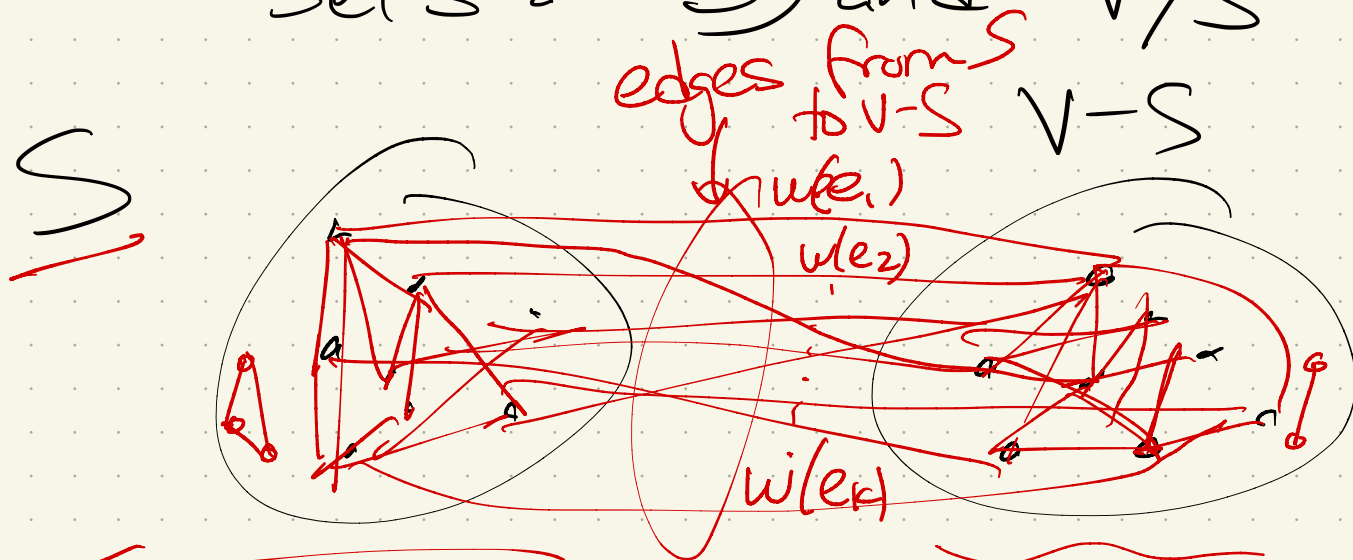 edges from S
to V-S
V-S
S
w(e₁)
w(e₂)
w(eₖ)